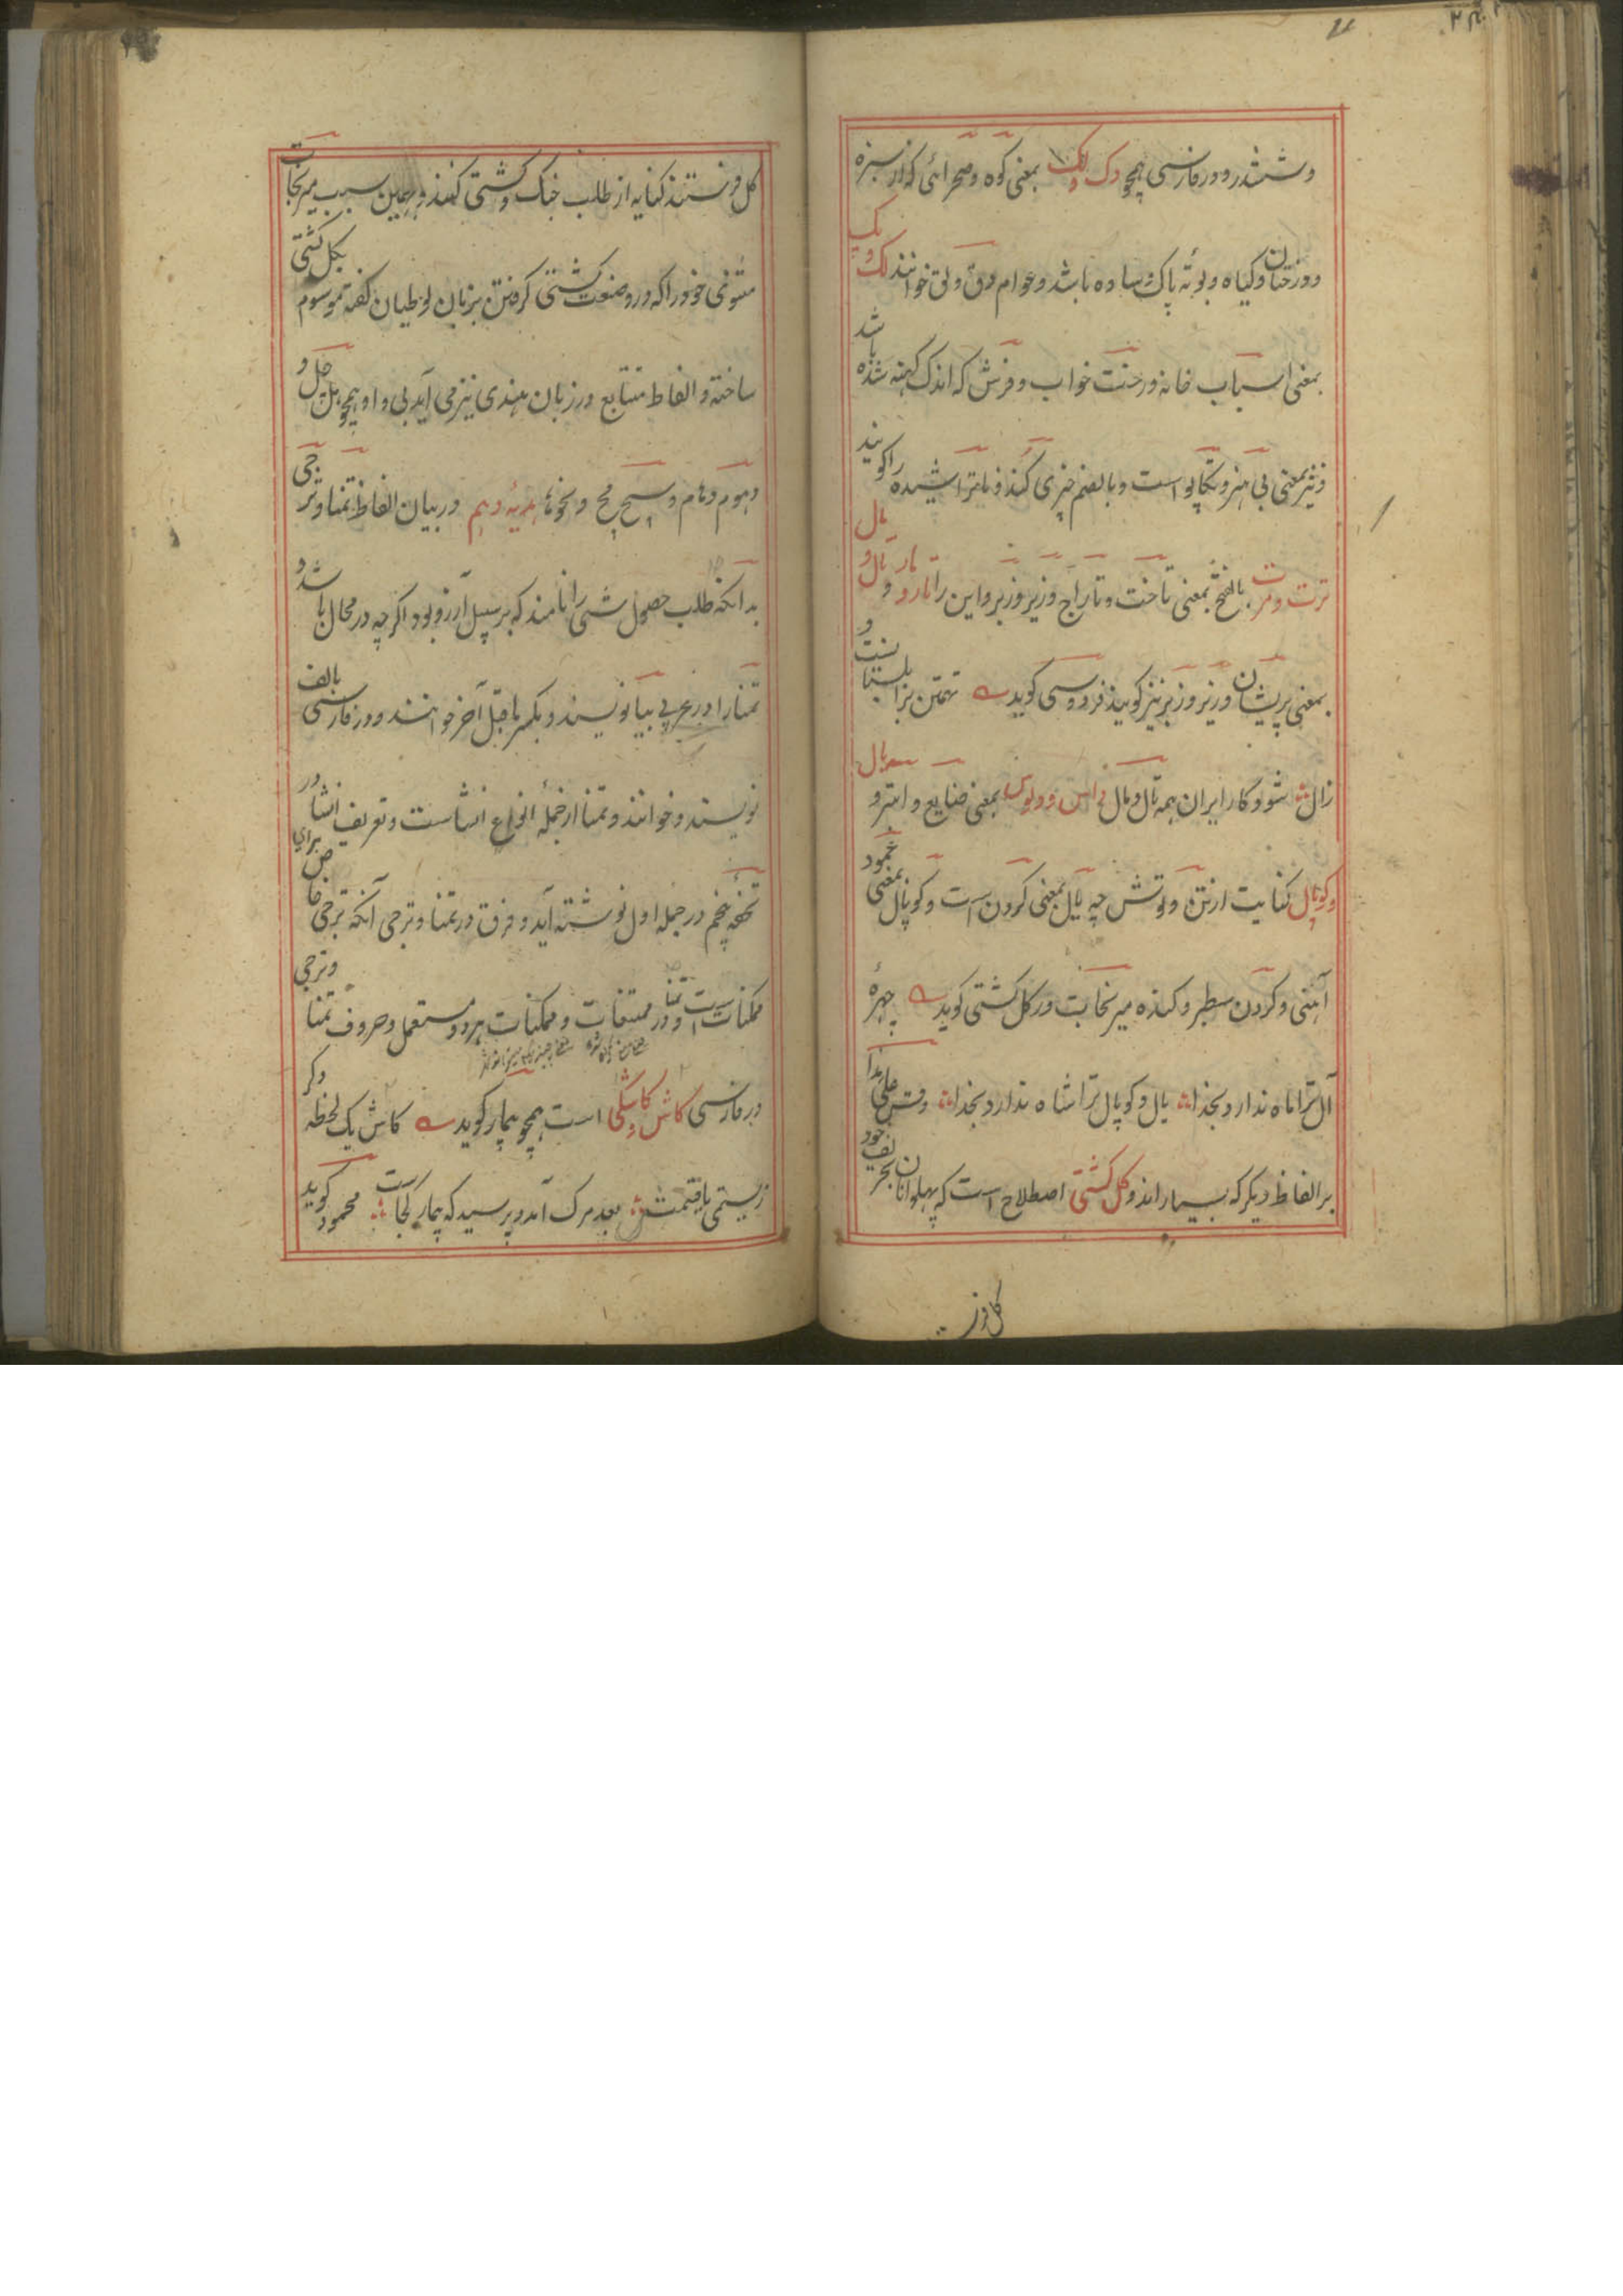 و شتندر و در فارسی همچو دک و لک بمعنی کوه و صحرائی که از سبزه
و درختان و کیاه و بوته پاک و ساده باشد و عوام دق و لق خوانند لک و پک
بمعنی اسباب خانه و رخت خواب و فرش که اندک کهنه شده باشد
و نیز بمعنی بی هنر و تکاپو است و بالضم چیزی کنده و ناتراشیده را کویند
ترت و مرت بالفتح بمعنی تاخت و تاراج و زیر و زبر و این را تار و مار و تال و مال
بمعنی پریشان و زیر و زبر نیز کویند فردوسی کوید تهمتن بزابلستانست و
زال شود کار ایران همه تال و مال و لاس و لوس بمعنی ضایع و ابتر و یال
و کوپال کنایت از تن و توش چه یال بمعنی کردن است و کوپال بمعنی عمود
آهنی و کردن سطبر و کنده میر نجات در کل کشتی کوید چهرهٔ
آل ترا ماه ندارد بخدا یال و کوپال ترا شاه ندارد بخدا و قس علی هذا
بر الفاظ دیکر که بسیار اند و کل کشتی اصطلاح است که پهلوانان بحریف خود
کل فر
کل فرستند کنایه از طلب جنک و کشتی کنند و بهمین سبب میر نجات
مثنوی خود را که در صنعت کشتی کرفتن بزبان لوطیان کفته موسوم بکل کشتی
ساخته و الفاظ متتابع در زبان هندی نیز می آید بی واو همچو هل چل و
دهوم دهام و سچ مچ و نحوها هدیهٔ دهم در بیان الفاظ تمنا و ترجی
بدانکه طلب حصول شی را نامند که بر سبیل آرزو بود اکر چه در محال باشد و
تمنا را در عربی بیا نویسند و بکسر ماقبل آخر خوانند و در فارسی بالف
نویسند و خوانند و تمنا از جملهٔ انواع انشاست و تعریف انشا در
تحفهٔ پنجم در جمله اول نوشته آید و فرق در تمنا و ترجی آنکه ترجی خاص برای
ممکنات است و تمنا در ممتنعات و ممکنات هر دو مستعمل و حروف تمنا و ترجی
در فارسی کاش و کاشکی است همچو بیمار کوید کاش یک لحظه دکر
زیستمی یافتمش بعد مرک آمد و پرسید که بیمار کجاست محمود کوید